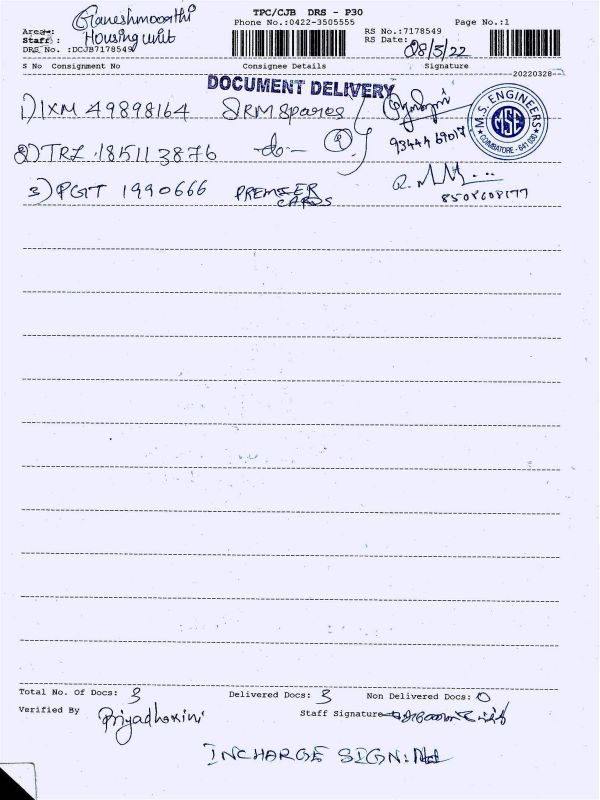 TPC/CJB DRS - P30
Ganeshmoorthi
Phone No.:0422-3505555
Page No.:1
Area:
Housing unit
RS No.:7178549
Staff:
RS Date: 08/5/22
DRS No. :DCJB7178549
S No Consignment No Consignee Details Signature
20220328
DOCUMENT DELIVERY
1) IXM 49898164 SRM Spares
93444 69017
M.S. ENGINEERS
MSE
COIMBATORE - 641 030
2) TRZ 185113876 -do- 2
3) PGT 1990666 PREMIER CARDS
8508608177
Total No. Of Docs: 3 Delivered Docs: 3 Non Delivered Docs: 0
Verified By Priyadharsini Staff Signature
INCHARGE SIGN: